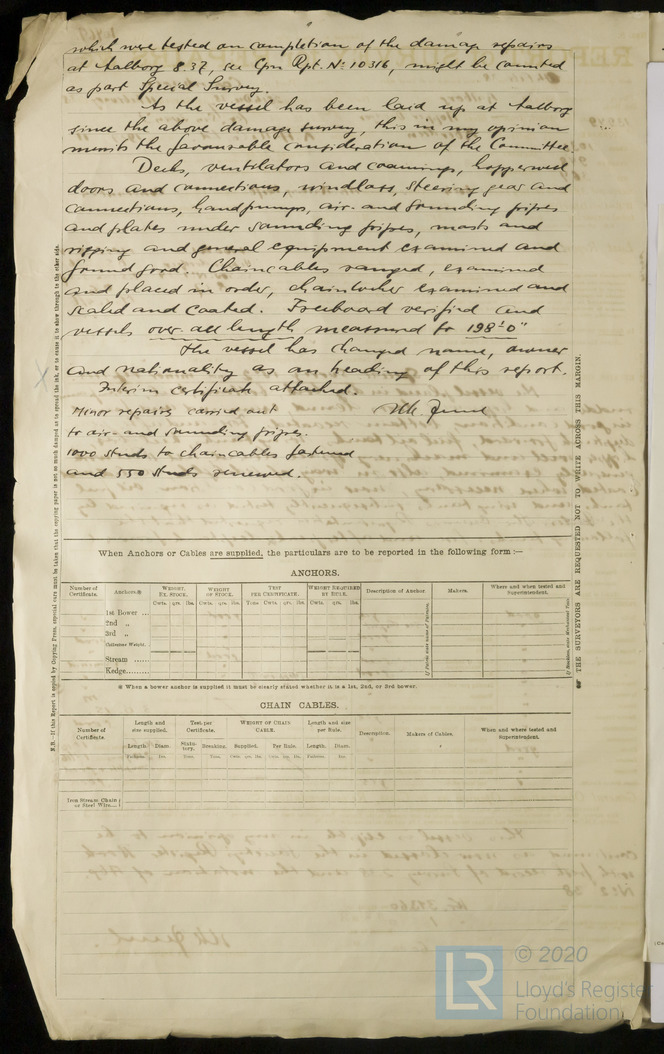 which were tested on completion of the damage repairs
at Aalborg 8.37, see Cpn Rpt. No 10316, might be counted
as part Special Survey.
As the vessel has been laid up at Aalborg
since the above damage survey, this in my opinion
merits the favourable consideration of the Committee.
Decks, ventilators and coamings, hopperwell
doors and connections, windlass, steering gear and
connections, handpumps, air- and sounding pipes
and plates under sounding pipes, masts and
rigging and general equipment examined and
found good. Chaincables ranged, examined
and placed in order, chainlocker examined and
scaled and coated. Freeboard verified and
vessels over all length measured to 198'-0"
The vessel has changed name, owner
and nationality as on heading of this report.
Interim certificate attached.
Minor repairs carried out
to air- and sounding pipes.
1000 studs to chaincables fastened
and 550 studs renewed.
When Anchors or Cables are supplied, the particulars are to be reported in the following form :—
ANCHORS.
Number of Certificate. Anchors.※ WEIGHT. EX. STOCK. WEIGHT OF STOCK. TEST PER CERTIFICATE. WEIGHT REQUIRED BY RULE. Description of Anchor. Makers. Where and when tested and Superintendent.
Cwts. qrs. lbs. Cwts. qrs. lbs. Tons Cwts. qrs. lbs. Cwts. qrs. lbs.
1st Bower ...
2nd „
3rd „
Collective Weight.
Stream ......
Kedge......
※ When a bower anchor is supplied it must be clearly stated whether it is a 1st, 2nd, or 3rd bower.
CHAIN CABLES.
Number of Certificate. Length and size supplied. Test per Certificate. WEIGHT OF CHAIN CABLE. Length and size per Rule. Description. Makers of Cables. When and where tested and Superintendent.
Length. Diam. Statutory. Breaking. Supplied. Per Rule. Length. Diam.
Iron Stream Chain or Steel Wire....
THE SURVEYORS ARE REQUESTED NOT TO WRITE ACROSS THIS MARGIN.
LR
© 2020
Lloyd's Register
Foundation